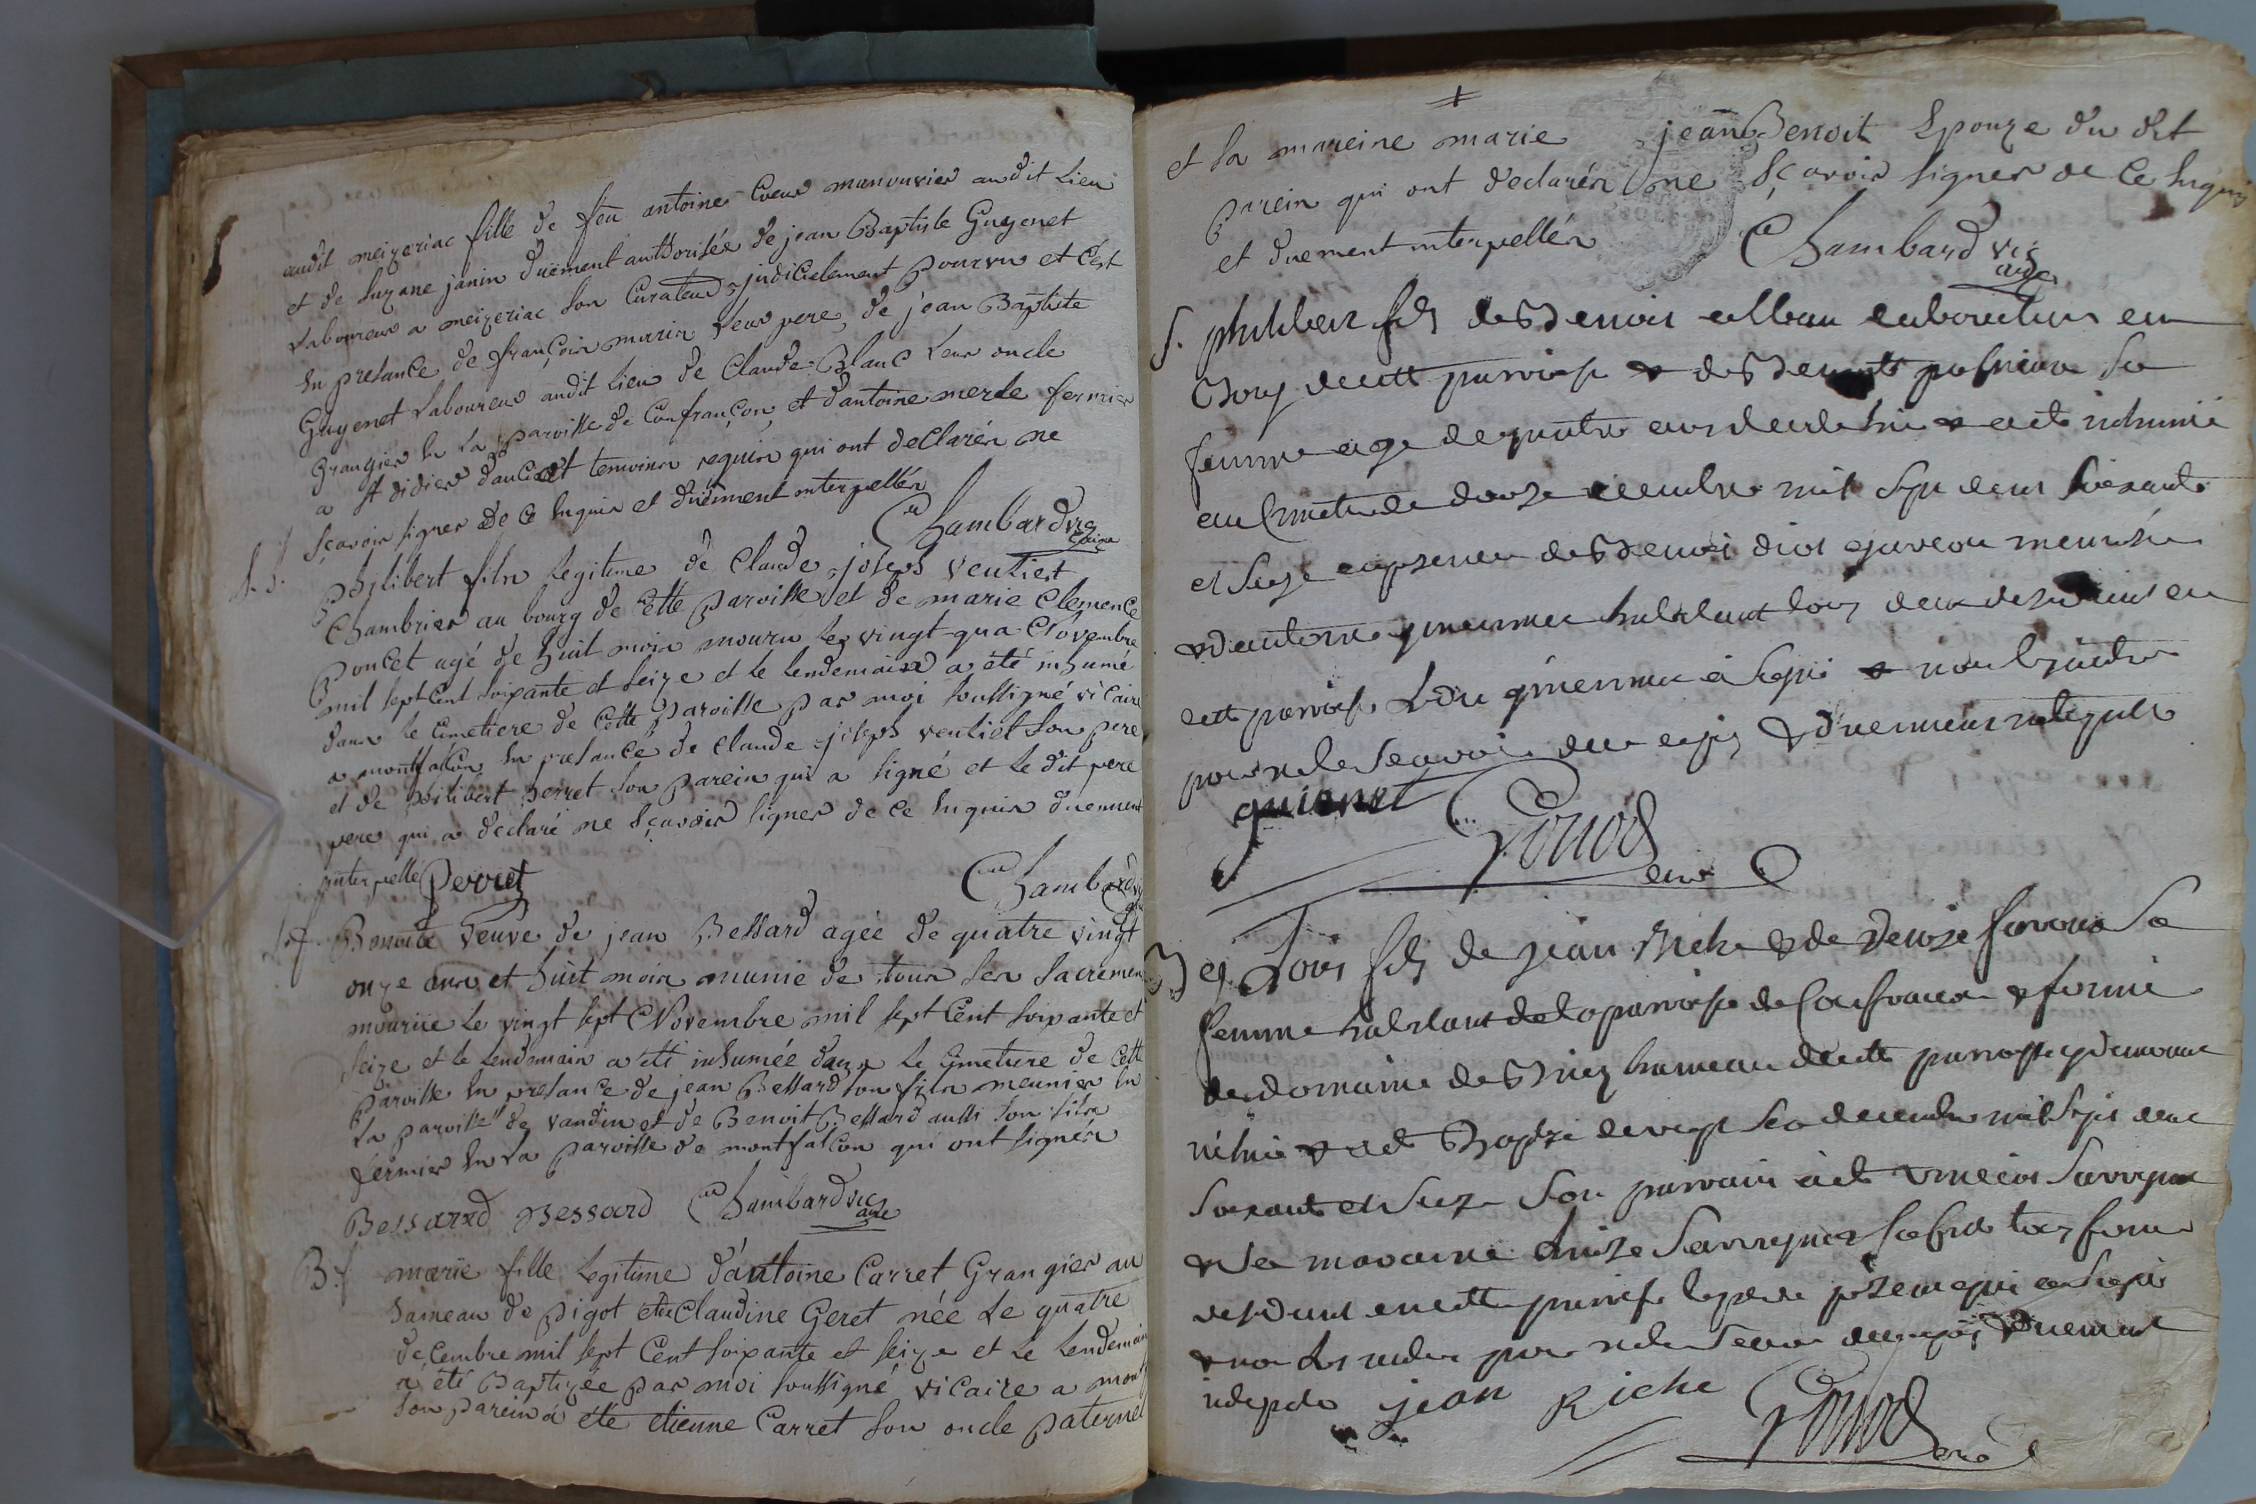 audit meizeriac fille de feu antoine Coeur manouvrier audit Lieu
et de suzane janin duëment authorisée de jean Baptiste Guyenet
Laboureur a meizeriac son Curateur judicielement pourvu et c'est
en presance de françois marin leur pere, de jean Baptiste
Guyenet Laboureur audit Lieu de Claude Blanc leur oncle
Grangier en La paroisse de Confrançon, et d'antoine merle fermier
a st didier temoins requis qui ont declarés ne
sçavoir signer de ce enquis et duëment interpellés
Chambard vicaire
Philibert fils legitime de Claude joseph ventiet
Chambrier au bourg de cette paroisse et de marie Clemence
poncet agé de huit mois mouru le vingt qua Novembre
mil sept cent soixante et seize et le lendemain a été inhumé
dans le cimetiere de cette paroisse par moi soussigné vicaire
a montfalcon en presance de claude joseph ventiet son pere
et de philibert perret son parein qui a signé et le dit pere
pere qui a declaré ne sçavoir signer de ce enquis duement
interpelle Perret
Chambard
Benoite veuve de jean Bessard agée de quatre vingt
onze ans et huit mois munie de tous ses sacremen
mouruë le vingt sept Novembre mil sept cent soixante et
seize et le lendemain a été inhumée dans le cimetiere de cette
paroisse en presance de jean Bessard son fils meunier en
La paroisse de vandin et de Benoit Bessard aussi son fils
fermier en La paroisse de montfalcon qui ont signés
Bessard Bessard Chambard vicaire
B. marie fille legitime d'antoine Carret Grangier au
hameau de pigot et de Claudine Geret née le quatre
decembre mil sept cent soixante et seize et le lendemain
a été Baptizée par moi soussigné vicaire a mont
son parein a été etienne Carret son oncle paternel
et sa mareine marie jean Benoit Epouze du dit
parein qui ont declarés ne sçavoir signer de ce enquis
et duement interpellés
Chambard vicaire
S. philibert fils de Benoit laboureur en
Bourg de cette paroisse & de Benoite sa
femme age de quatre ans decede hier & a ete inhumé
au cimetiere le douze decembre mil sept cent soixante
et seize en presence de Benoit
& d'antoine habitant tous deux en
cette paroisse Ledit guiennet a signé & non l'autre
pour ne le scavoir de ce enquis & duement interpelle
guienet
curé
B. Louis fils de jean Riche & de Denise sa
femme habitant de la paroisse de Confrancon & fermier
du domaine de hameau de cette paroisse y demeurant
ne hier & a ete Baptize le vingt decembre mil sept cent
soixante et seize son parrain a ete
& sa maraine Denize sa
residant en cette paroisse le pere present qui a signé
& non les autres pour ne le scavoir de ce enquis & duement
interpeles jean Riche
curé